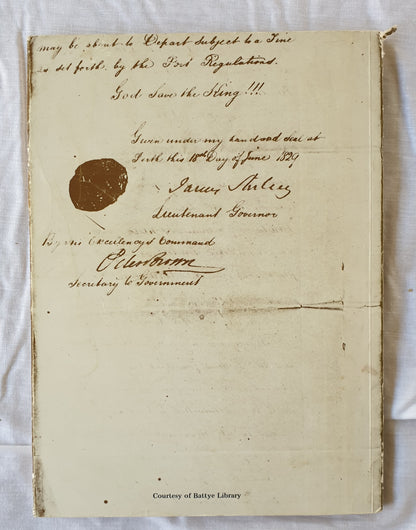 may be about to Depart subject to a Fine
as set forth by the Port Regulations.
God Save the King!!!
Given under my hand and Seal at
Perth this 18th Day of June 1829
James Stirling
Lieutenant Governor
By His Excellency's Command
Peter Brown
Secretary to Government
Courtesy of Battye Library